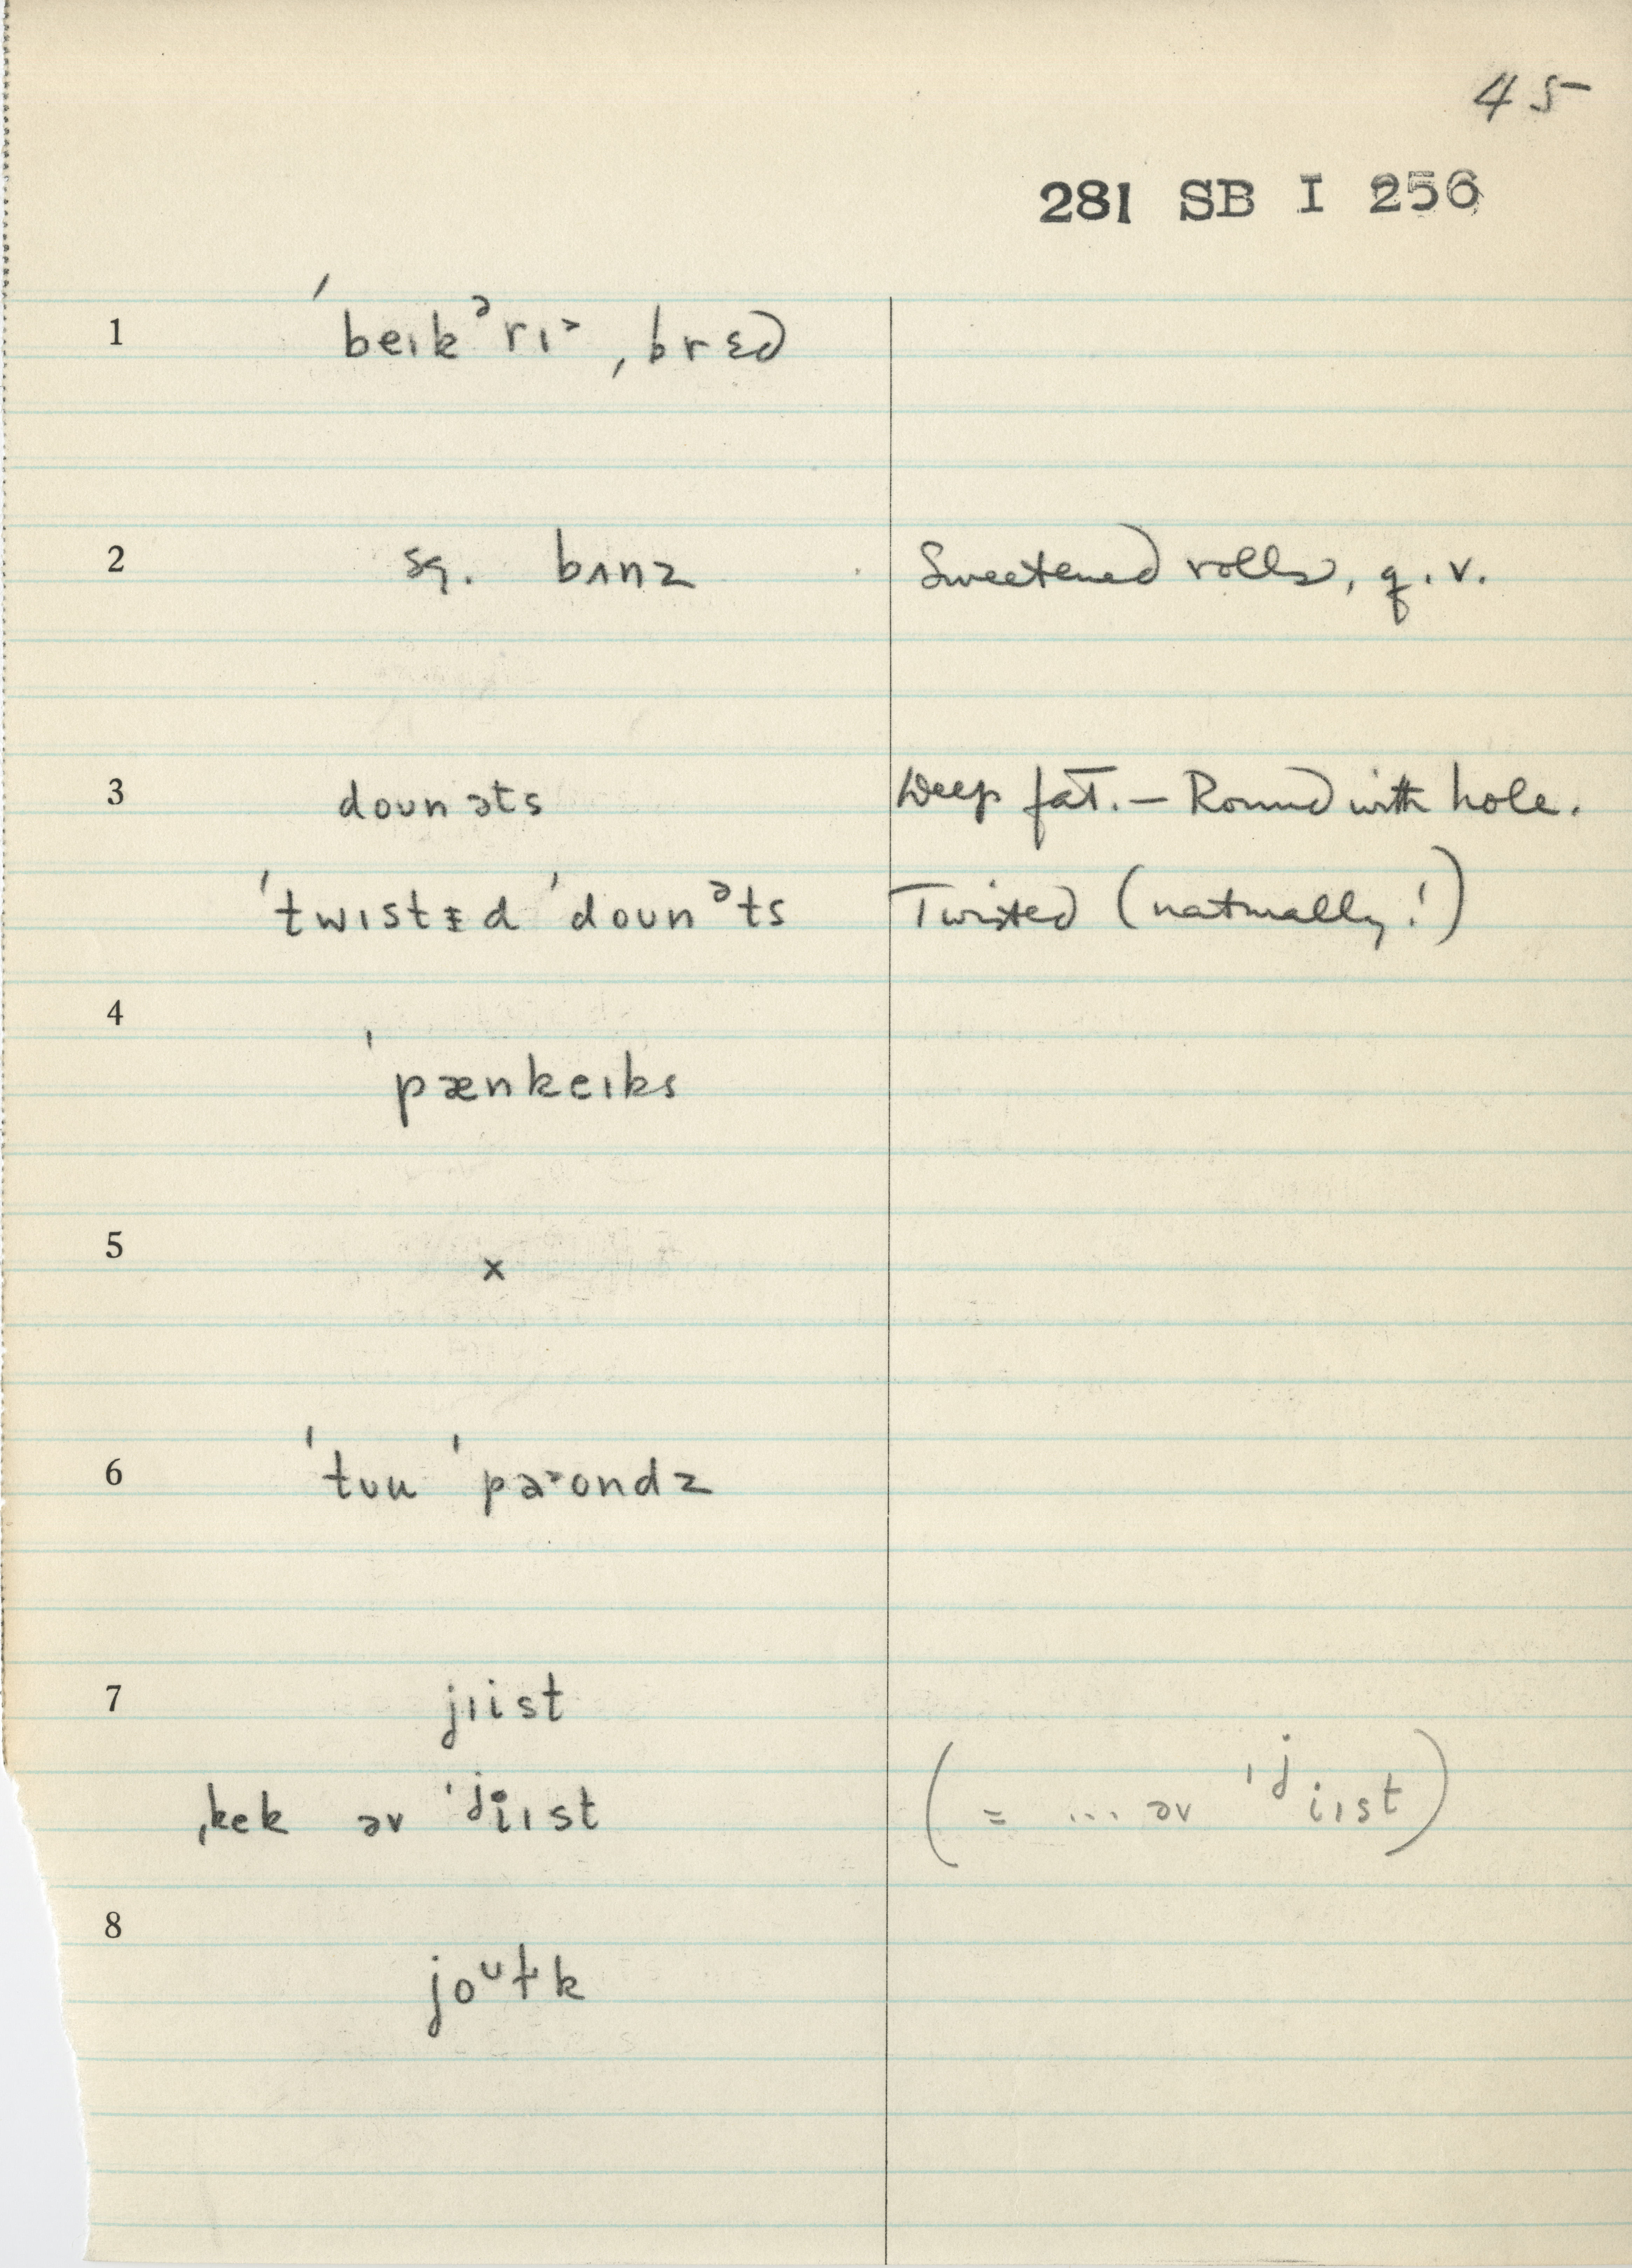 45
281 SB I 256
1 ˈbeɪkᵊrɪ˃ ˌbrɛd
2 sq. bʌnz Sweetened rolls, q.v.
3 doʊnəts Deep fat. — Round with hole.
ˈtwɪstɪ̵d ˈdoʊnᵊts Twisted (naturally!)
4 ˈpænkeɪks
5 x
6 ˈtʊu ˈpa˃ʊndz
7 jɪist
ˌkek əv ˈjiɪst (= ... əv ˈjiɪst)
8 joᶷɫk